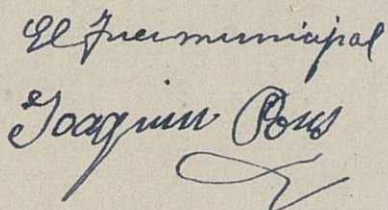 El Juez municipal
Joaquin Pons